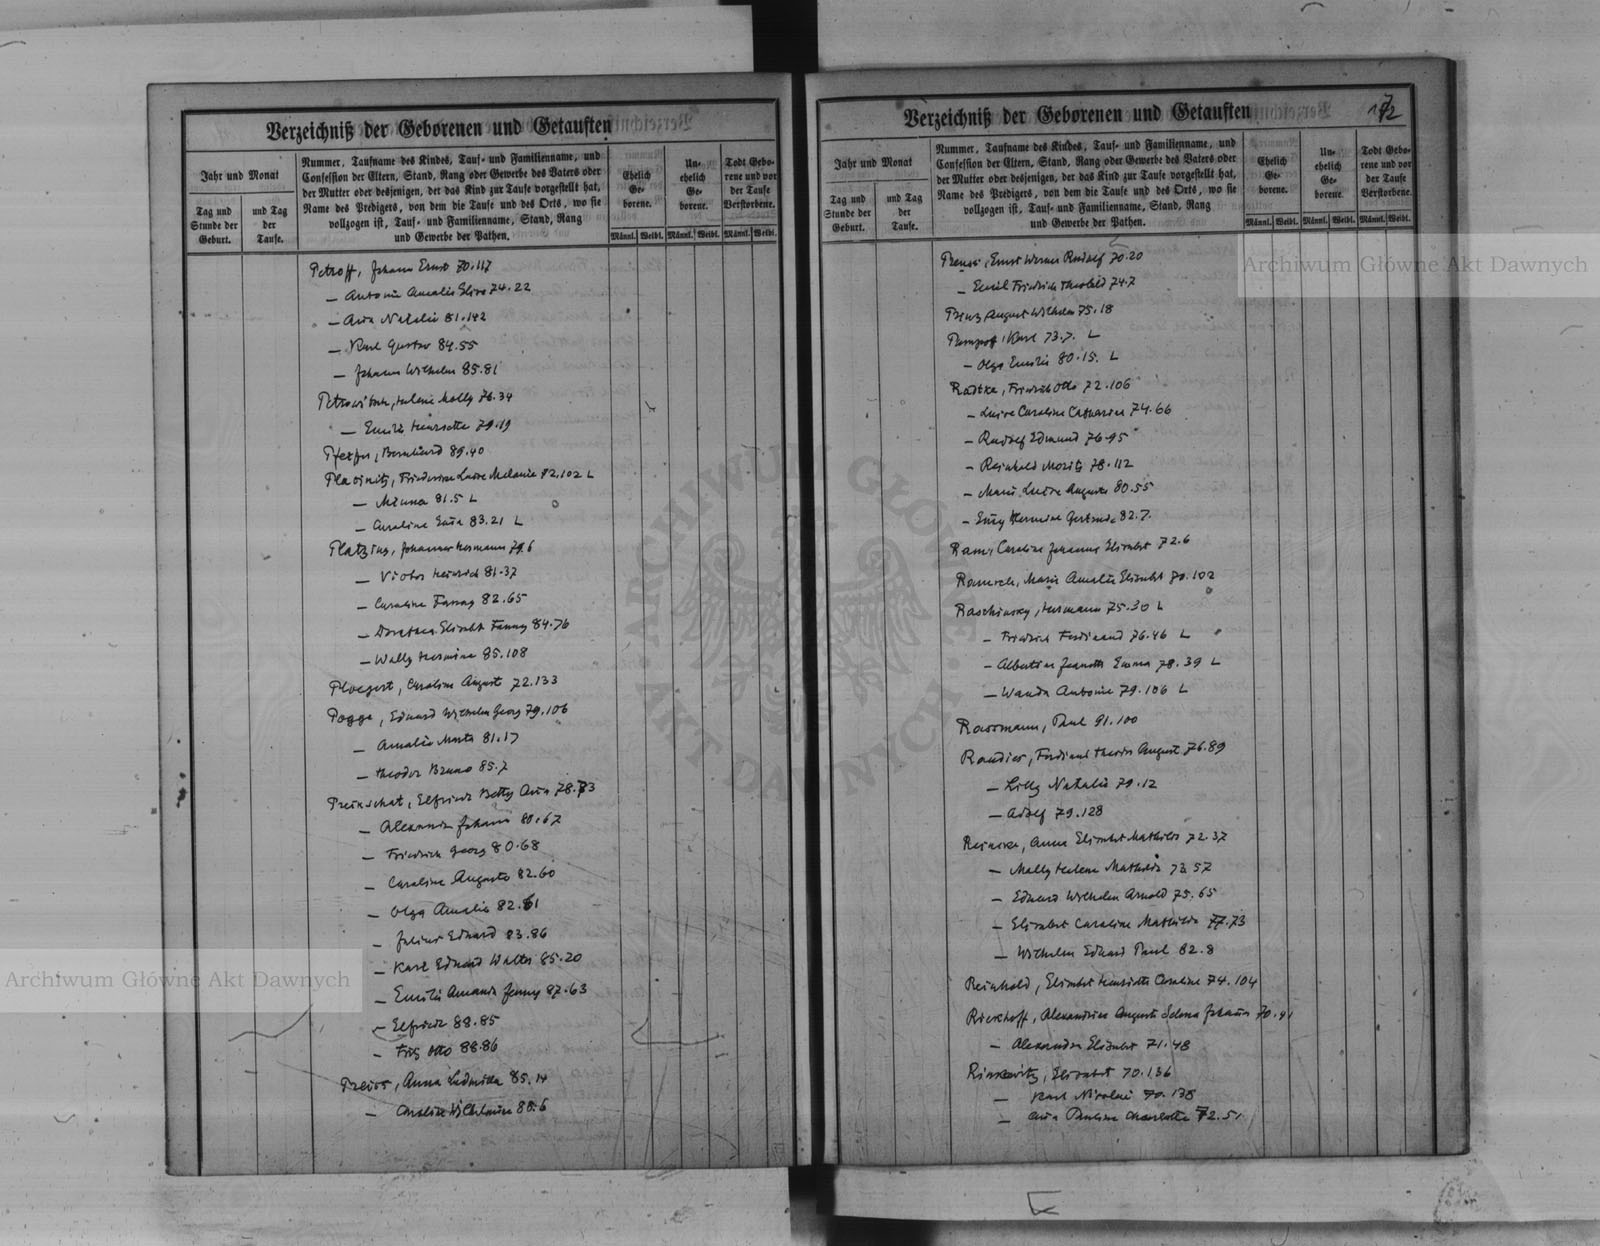 Verzeichniß der Geborenen und Getauften
Jahr und Monat
Tag und
Stunde der
Geburt.
und Tag
der
Taufe.
Nummer, Taufname des Kindes, Tauf- und Familienname, und
Confession der Eltern, Stand, Rang oder Gewerbe des Vaters oder
der Mutter oder desjenigen, der das Kind zur Taufe vorgestellt hat,
Name des Predigers, von dem die Taufe und des Orts, wo sie
vollzogen ist, Tauf- und Familienname, Stand, Rang
und Gewerbe der Pathen.
Ehelich
Ge-
borene.
Un-
ehelich
Ge-
borene.
Todt Gebo-
rene und vor
der Taufe
Verstorbene.
Männl. Weibl. Männl. Weibl. Männl. Weibl.
Petroff, Johann Ernst 70.117
— Antonie Amalie Elise 74.22
— Natalie 81.142
— Karl Gustav 84.55
— Johann Wilhelm 85.81
Helene Molly 76.34
— Emilie Henriette 79.19
Bernhard 89.40
Friederike Luise Melanie 82.102 L
— Minna 81.5 L
— Caroline 83.21 L
Johannes Hermann 79.6
— Victor Heinrich 81.37
— Caroline Fanny 82.65
— Dorothea Elisabet Fanny 84.76
— Wally Hermine 85.108
Ploegert, Caroline Auguste 72.133
Pogge, Eduard Wilhelm Georg 79.106
— Amalie Marta 81.17
— Theodor Bruno 85.7
Elfriede Betty 78.73
— Alexander Johann 80.67
— Friedrich Georg 80.68
— Caroline Auguste 82.60
— Olga Amalie 82.61
— Julius Eduard 83.86
— Karl Eduard Walter 85.20
— Emilie Amanda Jenny 87.63
— Elfriede 88.85
— Fritz Otto 88.86
Preiss, Anna Ludmilla 85.14
— Caroline Wilhelmine 88.6
Verzeichniß der Geborenen und Getauften
172
Jahr und Monat
Tag und
Stunde der
Geburt.
und Tag
der
Taufe.
Nummer, Taufname des Kindes, Tauf- und Familienname, und
Confession der Eltern, Stand, Rang oder Gewerbe des Vaters oder
der Mutter oder desjenigen, der das Kind zur Taufe vorgestellt hat,
Name des Predigers, von dem die Taufe und des Orts, wo sie
vollzogen ist, Tauf- und Familienname, Stand, Rang
und Gewerbe der Pathen.
Ehelich
Ge-
borene.
Un-
ehelich
Ge-
borene.
Todt Gebo-
rene und vor
der Taufe
Verstorbene.
Männl. Weibl. Männl. Weibl. Männl. Weibl.
Preuss, Ernst Werner Rudolf 70.20
— Emil Friedrich Theobald 74.7
August Wilhelm 75.18
Karl 73.7. L
— Olga Emilie 80.15. L
Radtke, Friedrich Otto 72.106
— Luise Caroline Catharina 74.66
— Rudolf Edmund 76.95
— Reinhold Moritz 78.112
— Marie Luise Auguste 80.55
— Hermine Gertrude 82.7.
Caroline Johanna Elisabet 72.6
Marie Amalie Elisabet 70.102
Raschinsky, Hermann 75.30 L
— Friedrich Ferdinand 76.46 L
— Albertine Jeanette Emma 78.39 L
— Wanda Antonie 79.106 L
Rassmann, Paul 91.100
Raudies, Ferdinand Theodor August 76.89
— Lilly Natalie 79.12
— Adolf 79.128
Reincke, Anna Elisabet Mathilde 72.37
— Molly Helene Mathilde 73.57
— Eduard Wilhelm Arnold 75.65
— Elisabet Caroline Mathilde 77.73
— Wilhelm Eduard Paul 82.8
Reinhold, Elisabet Henriette Caroline 74.104
Rieckhoff, Alexandrine Auguste Selma 70.41
— Alexandra Elisabet 71.48
Elisabet 70.136
— Karl Nicolai 70.138
— Pauline Charlotte 72.51
Archiwum Główne Akt Dawnych
Archiwum Główne Akt Dawnych
ARCHIWUM GŁÓWNE AKT DAWNYCH